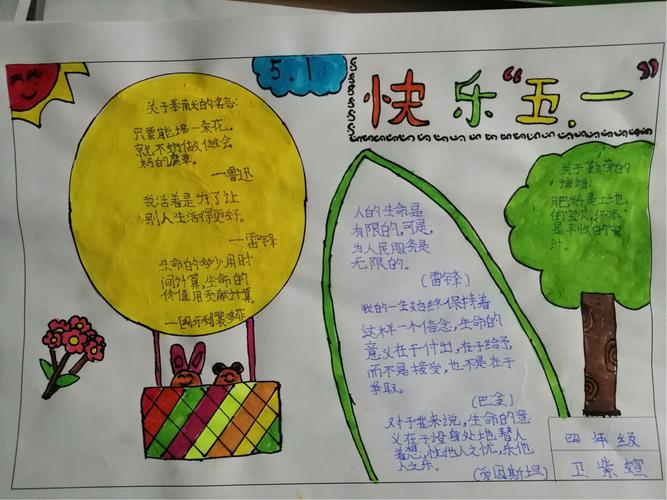 5.1
快乐“五.一”
关于奉献的名言:
只要能培一朵花,
就不妨做做会
朽的腐草。
—鲁迅
我活着是为了让
别人生活得更好。
—雷锋
生命的多少用时
间计算,生命的
价值用贡献计算。
—裴多菲
人的生命是
有限的,可是,
为人民服务是
无限的。
(雷锋)
我的一生始终保持着
这样一个信念,生命的
意义在于付出,在于给予
而不是接受,也不是在于
争取。
(巴金)
对于我来说,生命的意
义在于设身处地替人
着想,忧他人之忧,乐他
人之乐。
(爱因斯坦)
关于勤劳的
肥料是土地
的宝贝,汗水
是丰收的蜜
汁。
四年级
卫紫煊